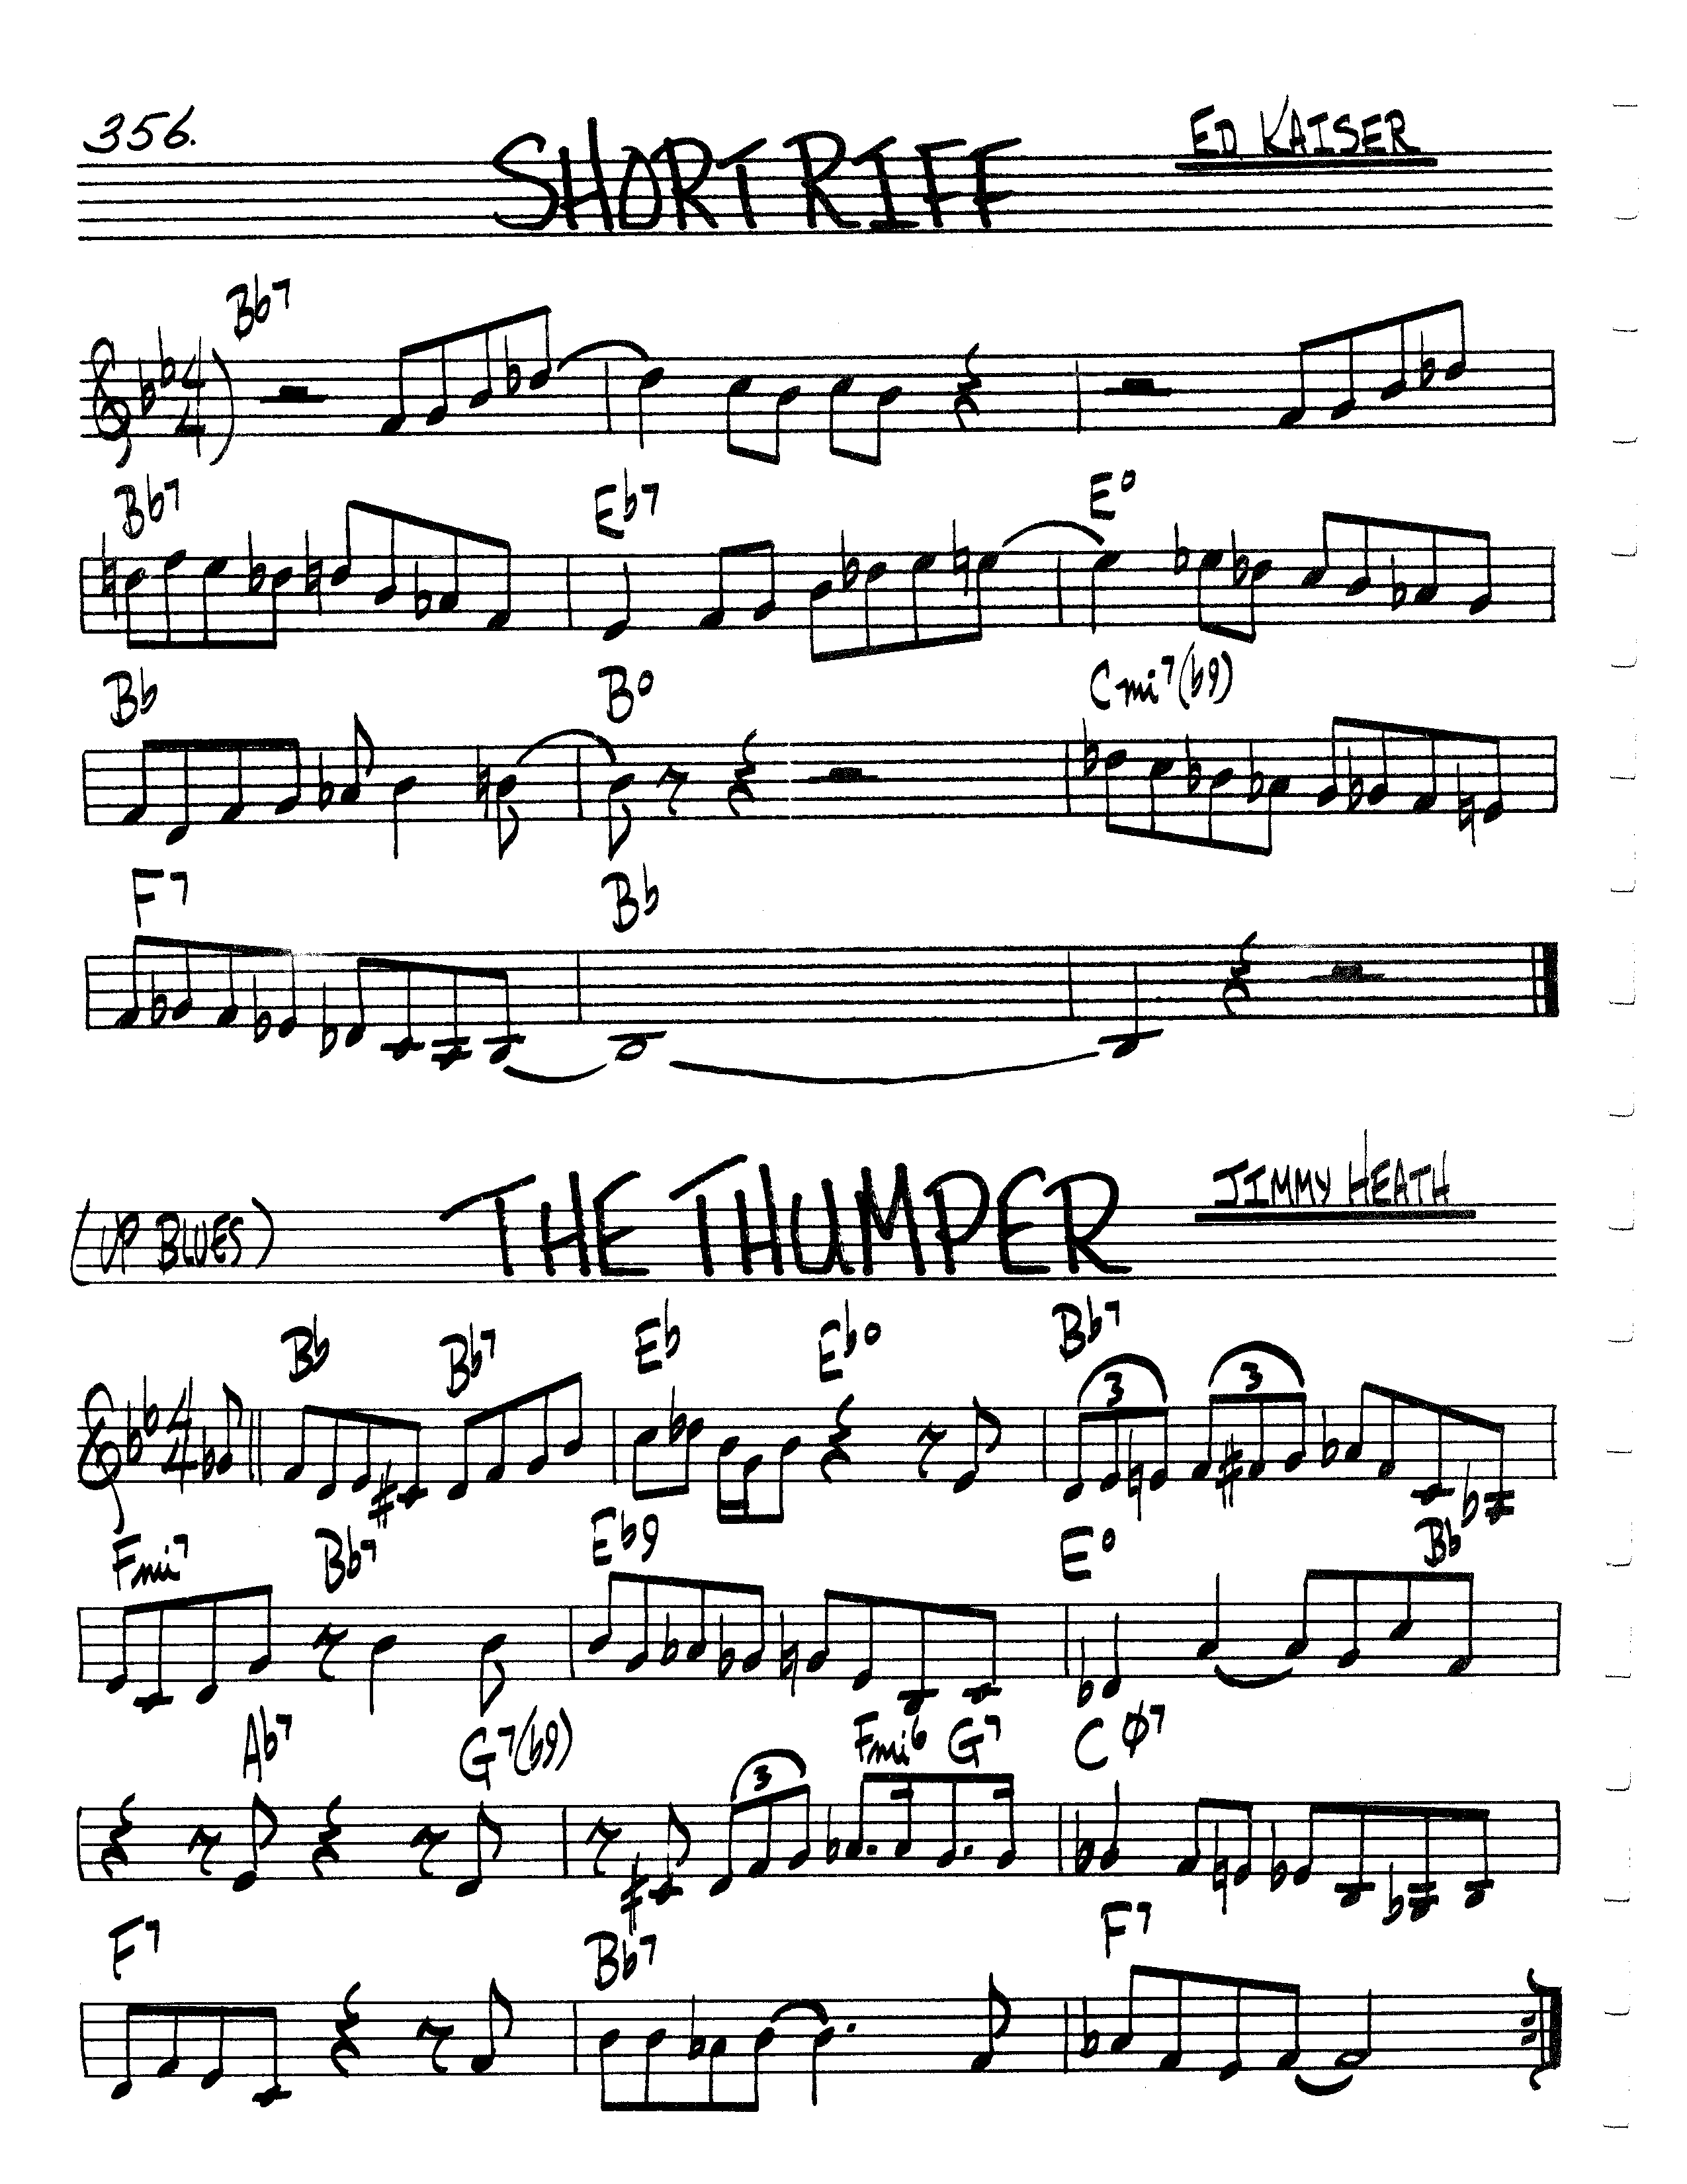 356.
SHORT RIFF
ED KAISER
Bb7
4
4
Bb7 Eb7 E°
Bb B° Cmi7(b9)
F7 Bb
(UP BLUES)
THE THUMPER
JIMMY HEATH
Bb Bb7 Eb Eb° Bb7
4
4
3 3
Fmi7 Bb7 Eb9 E° Bb
Ab7 G7(b9) Fmi6 G7 CØ7
3
F7 Bb7 F7